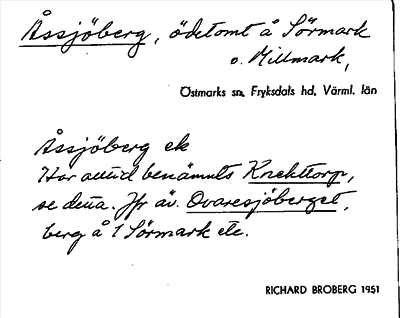 Åssjöberg, ödetomt å Sörmark
o. Millmark,
Östmarks sn, Fryksdals hd, Värml. län
Åssjöberg ek
Har altid benämnts Knekttorp,
se detta. Jfr äv. Ovaresjöberget,
berg å 1 Sörmark etc.
RICHARD BROBERG 1951